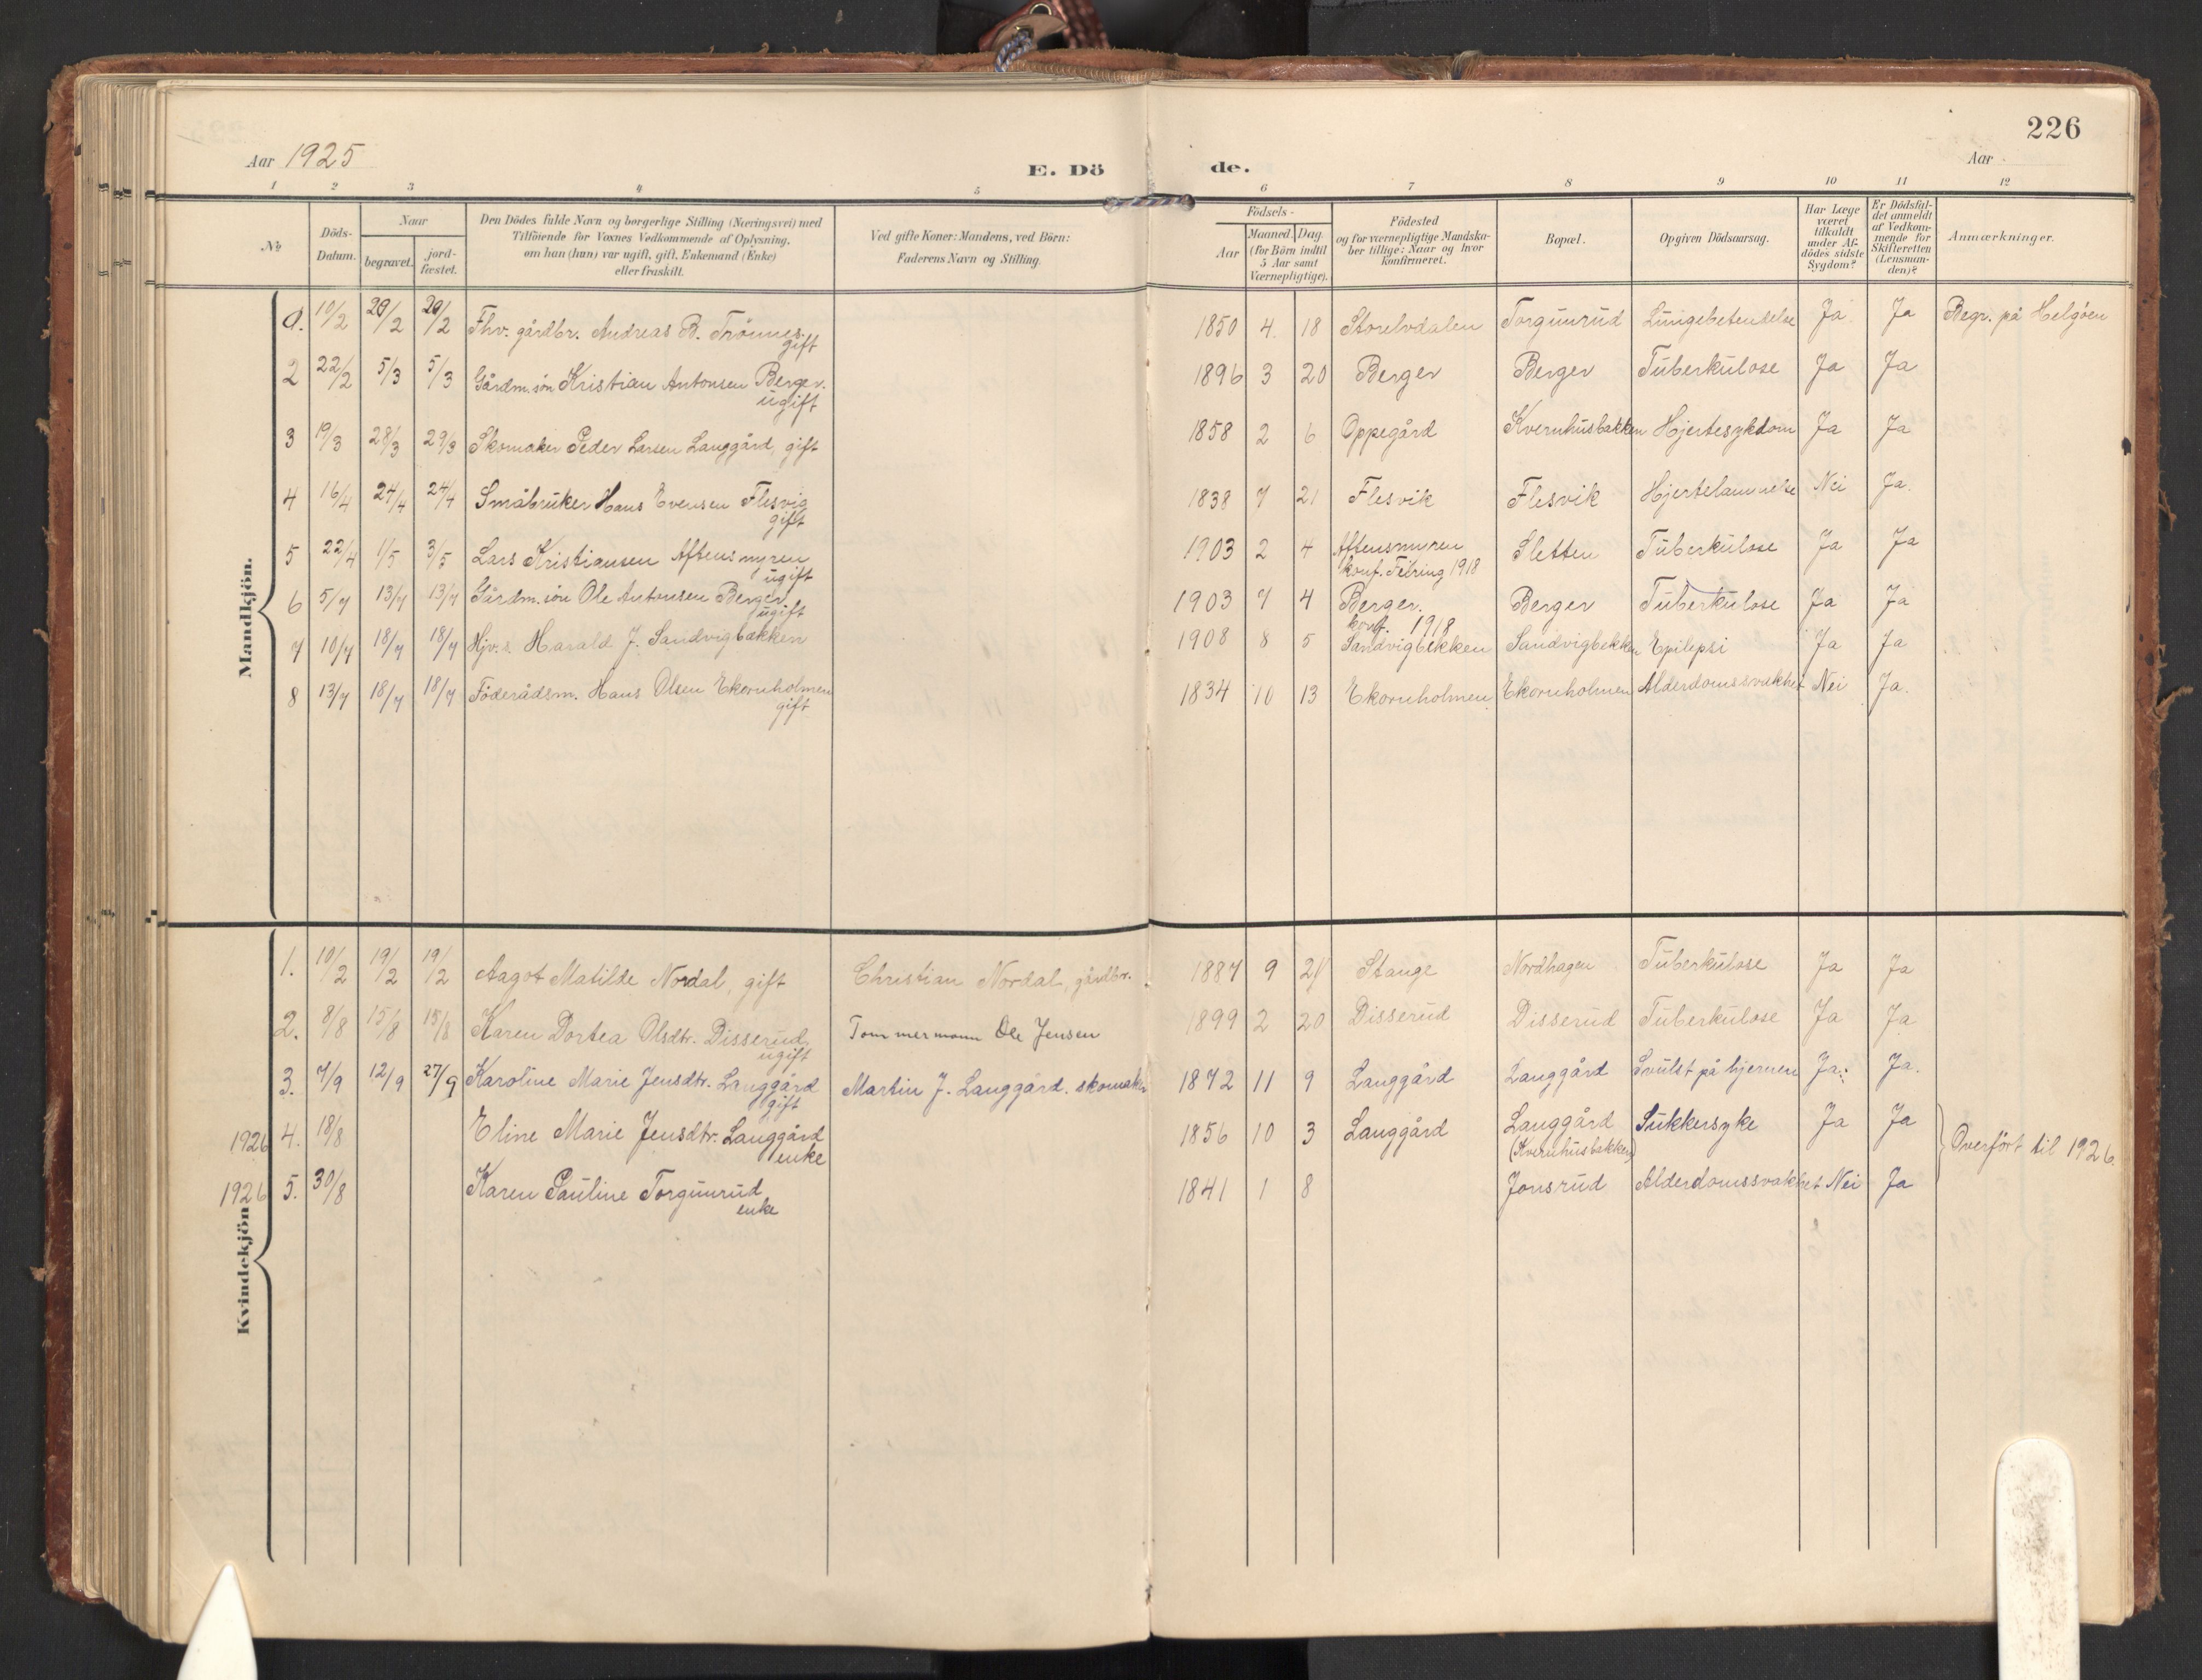 226
Aar 1925
E. Dö de.
Aar
1 2 3 4 5 6 7 8 9 10 11 12
№
Döds-Datum.
Naar
begravet.
jord-fæstet.
Den Dödes fulde Navn og borgerlige Stilling (Næringsvei) med
Tilföiende for Voxnes Vedkommende af Oplysning,
om han (hun) var ugift, gift, Enkemand (Enke)
eller fraskilt.
Ved gifte Koner: Mandens, ved Börn:
Faderens Navn og Stilling.
Födsels-
Aar
Maaned. Dag.
(for Börn indtil
5 Aar samt
Værnepligtige).
Födested
og for værnepligtige Mandska-
ber tillige: Naar og hvor
konfirmeret.
Bopæl.
Opgiven Dödsaarsag.
Har Læge
været
tilkaldt
under Af-
dödes sidste
Sygdom?
Er Dödsfal-
det anmeldt
af Vedkom-
mende for
Skifteretten
(Lensman-
den)?
Anmærkninger.
Mandkjön.
1. 10/2 20/2 20/2 Fhv. gårdbr. Andreas B. Trönnes. gift 1850 4. 18 Storelvdalen Torgunrud Lungebetendelse Ja Ja Begr. på Helgöen
2 22/2 5/3 5/3 Gårdm.sön Kristian Antonsen Berger. ugift 1896 3 20 Berger Berger Tuberkulose Ja Ja
3 19/3 28/3 29/3 Skomaker Peder Larsen Langgård, gift 1858 2 6 Oppegård Kvernhusbakken Hjertesykdom Ja Ja
4 16/4 24/4 24/4 Småbruker Hans Evensen Flesvig gift 1838 7 21 Flesvik Flesvik Hjertelammelse Nei Ja.
5 22/4 1/5 3/5 Lars Kristiansen Aftensmyren ugift 1903 2 4 Aftensmyren konf. Feiring 1918 Sletten Tuberkulose Ja Ja
6 5/7 13/7 13/7 Gårdm.sön Ole Antonsen Berger ugift 1903 7 4 Berger. konf. 1918 Berger Tuberkulose Ja Ja
7 10/7 18/7 18/7 Hjv.s. Harald J. Sandvigbækken 1908 8 5 Sandvigbekken Sandvigbekken Epilepsi Ja Ja
8 13/7 18/7 18/7 Föderådsm. Hans Olsen Ekornholmen gift 1834 10 13 Ekornholmen Ekornholmen Alderdomssvakhet Nei Ja.
Kvindekjön
1. 10/2 19/2 19/2 Aagot Matilde Nordal, gift Christian Nordal, gårdbr. 1887 9 21 Stange Nordhagen Tuberkulose Ja Ja
2. 8/8 15/8 15/8 Karen Dortea Olsdtr. Disserud, ugift Tommermann Ole Jensen 1899 2 20 Disserud Disserud Tuberkulose Ja Ja
3. 7/9 12/9 27/9 Karoline Marie Jensdtr. Langgård gift Martin J. Langgård. skomaker 1872 11 9 Langgård Langgård Svulst på hjernen Ja. Ja.
1926 4. 18/8 Eline Marie Jensdtr. Langgård enke 1856 10 3 Langgård Langgård (Kvernhusbakken) Sukkersyke Ja Ja
Overfört til 1926.
1926 5. 30/8 Karen Pauline Torgunrud enke 1841 1 8 Jonsrud Alderdomssvakhet Nei Ja